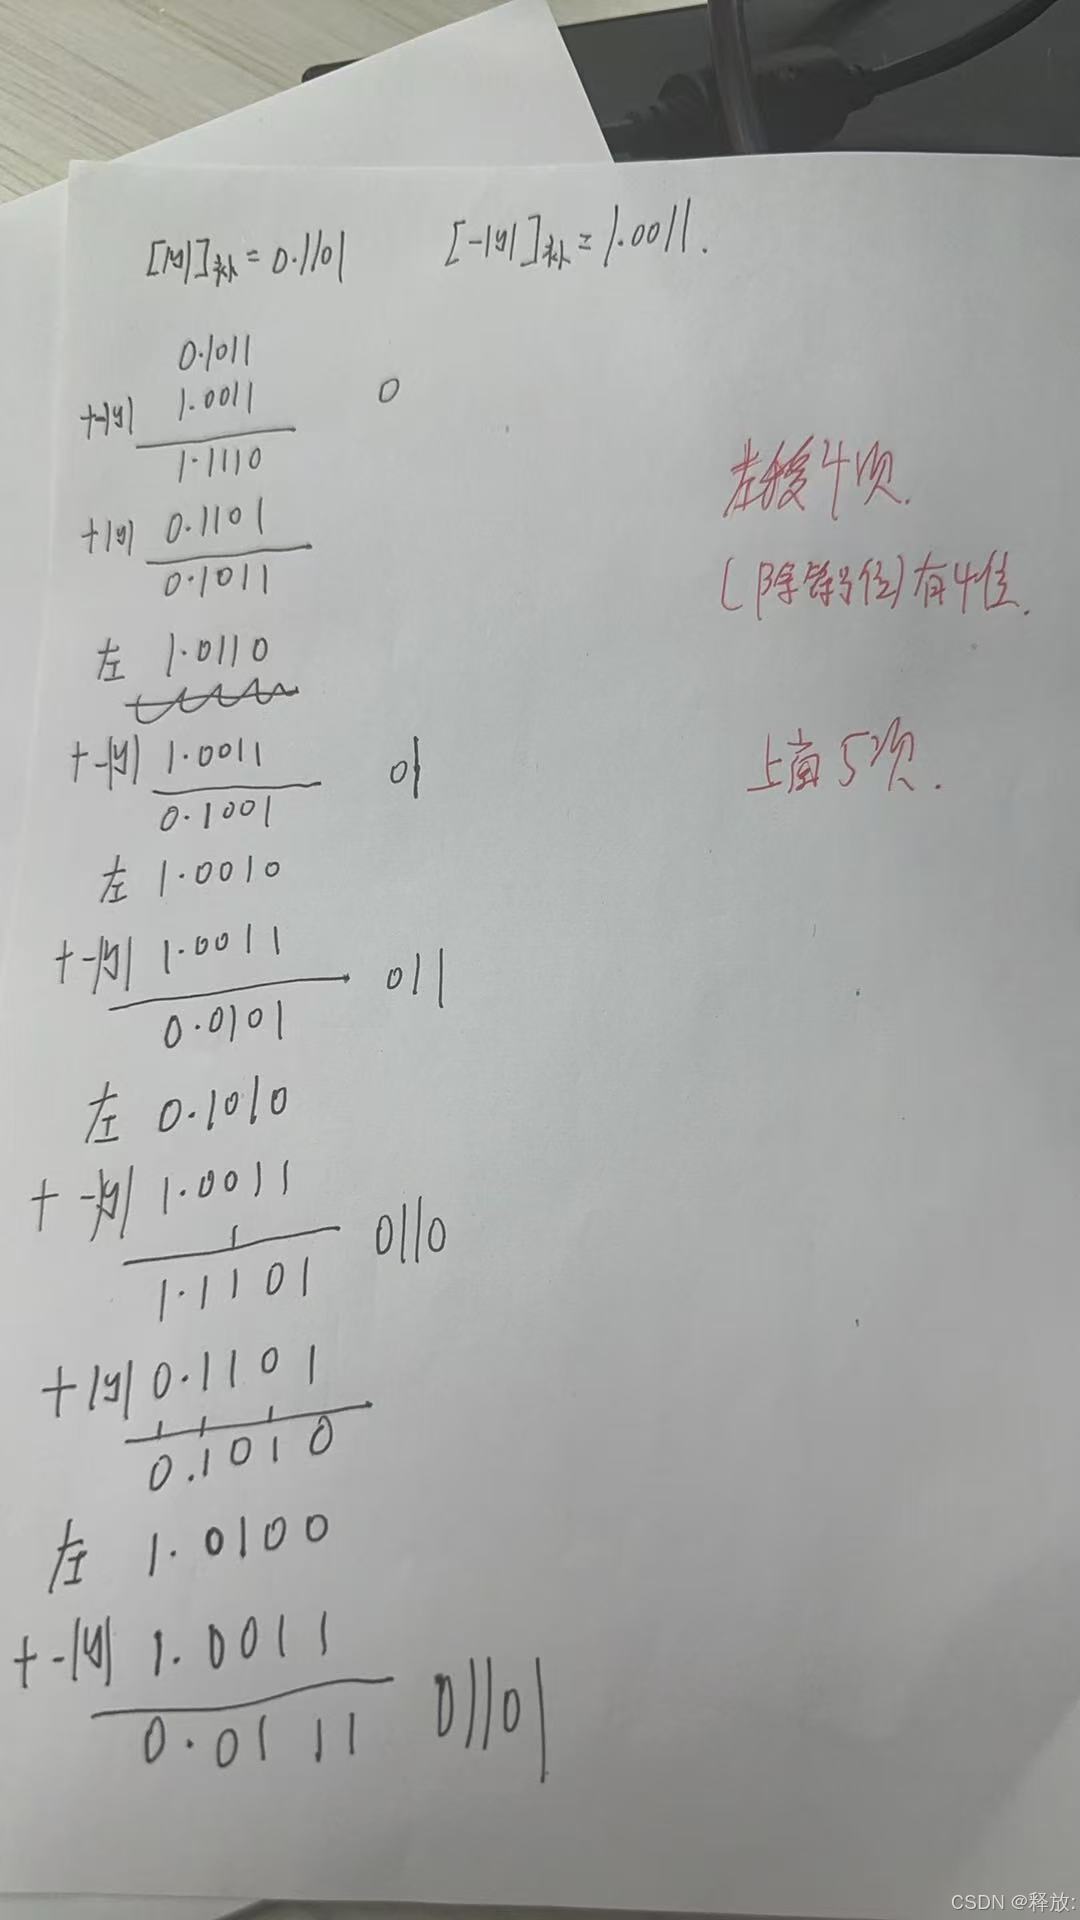 [|y|]补 = 0.1101 [-|y|]补 = 1.0011.
0.1011
+-|y| 1.0011 0
1.1110
+|y| 0.1101
0.1011
左 1.0110
+-|y| 1.0011 01
0.1001
左 1.0010
+-|y| 1.0011 011
0.0101
左 0.1010
+-|y| 1.0011 0110
1.1101
+|y| 0.1101
0.1010
左 1.0100
+-|y| 1.0011 01101
0.0111
左移4项.
(除符号位)有4位.
上商5项.
CSDN @释放: